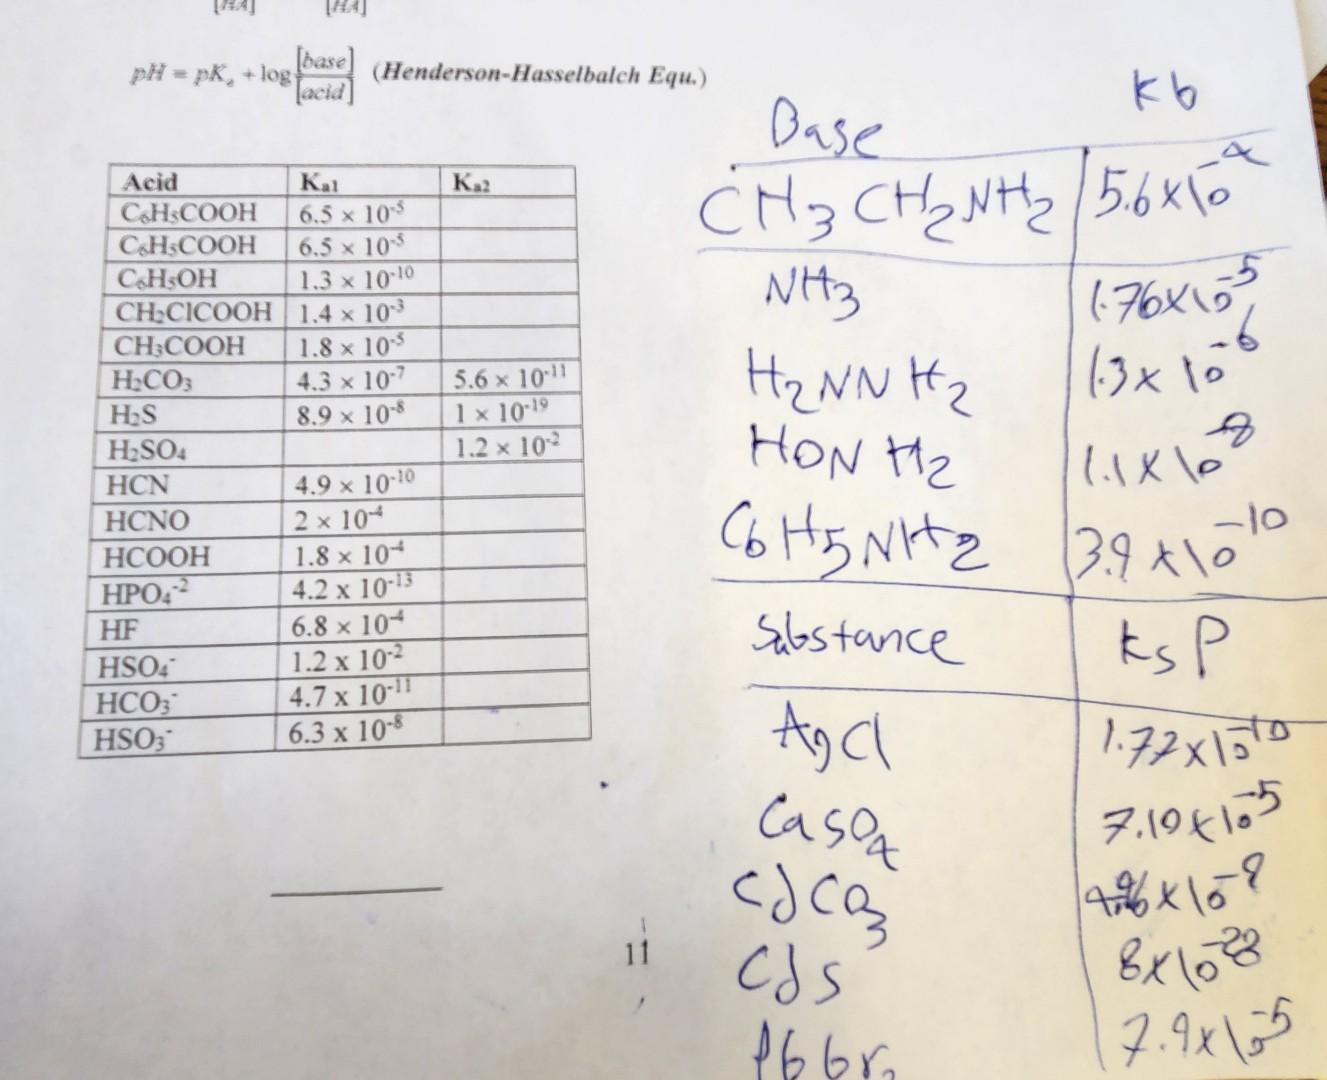 [HA] [HA]
pH = pKa + log [base]/[acid] (Henderson-Hasselbalch Equ.)
Acid Ka1 Ka2
C6H5COOH 6.5 × 10-5
C6H5COOH 6.5 × 10-5
C6H5OH 1.3 × 10-10
CH2ClCOOH 1.4 × 10-3
CH3COOH 1.8 × 10-5
H2CO3 4.3 × 10-7 5.6 × 10-11
H2S 8.9 × 10-8 1 × 10-19
H2SO4 1.2 × 10-2
HCN 4.9 × 10-10
HCNO 2 × 10-4
HCOOH 1.8 × 10-4
HPO4-2 4.2 x 10-13
HF 6.8 × 10-4
HSO4- 1.2 x 10-2
HCO3- 4.7 x 10-11
HSO3- 6.3 x 10-8
11
Base Kb
CH3CH2NH2 5.6x10-4
NH3 1.76x10-5
H2NNH2 1.3x10-6
HONH2 1.1x10-8
C6H5NH2 3.9x10-10
Substance Ksp
AgCl 1.72x10-10
CaSO4 7.10x10-5
CdCO3 x10-9
CdS 8x10-28
PbBr2 7.9x10-5